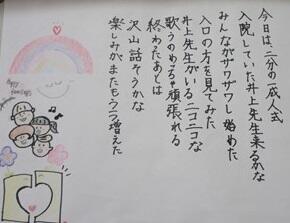 今日は、二分の一成人式
入院していた井上先生来るかな
みんながザワザワし始めた
入口の方を見てみた
井上先生がいるニコニコな
歌うのめちゃ頑張れる
終わたあとは
沢山話そうかな
楽しみがまたもう一つ増えた
Happy